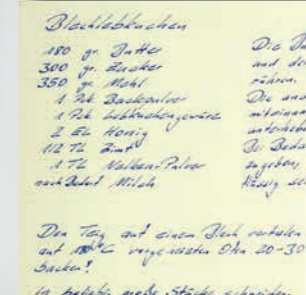 Blechlebkuchen
180 gr. Butter
300 gr. Zucker
350 gr. Mehl
1 Pck. Backpulver
1 Pck. Lebkuchengewürz
2 EL Honig
1/2 TL Zimt
1 TL Nelken-Pulver
nach Bedarf Milch
Die
und
rühren.
Die
Bei
zugeben,
flüssig
Den Teig auf einem Blech verteilen
auf 180°C vorgeheizten Ofen 20-30
backen!
in beliebig große Stücke schneiden